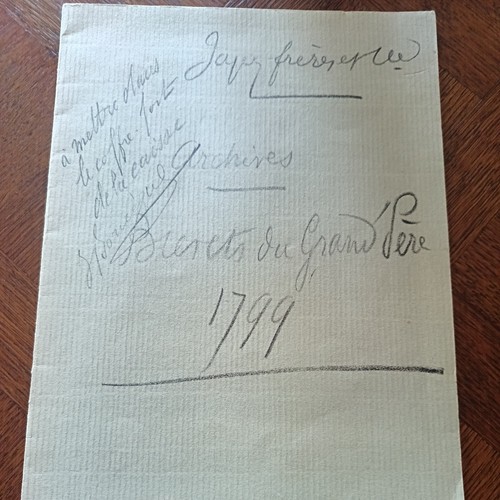 Japy frères et Cie
à mettre dans
le coffre-fort
de la caisse
Archives
Brevets du Grand Père
1799